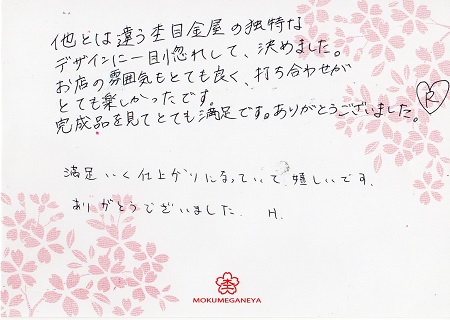 他とは違う杢目金屋の独特な
デザインに一目惚れして、決めました。
お店の雰囲気もとても良く、打ち合わせが
とても楽しかったです。
完成品を見てとても満足です。ありがとうございました。 R
満足いく仕上がりになっていて嬉しいです。
ありがとうございました. H.
杢
MOKUMEGANEYA